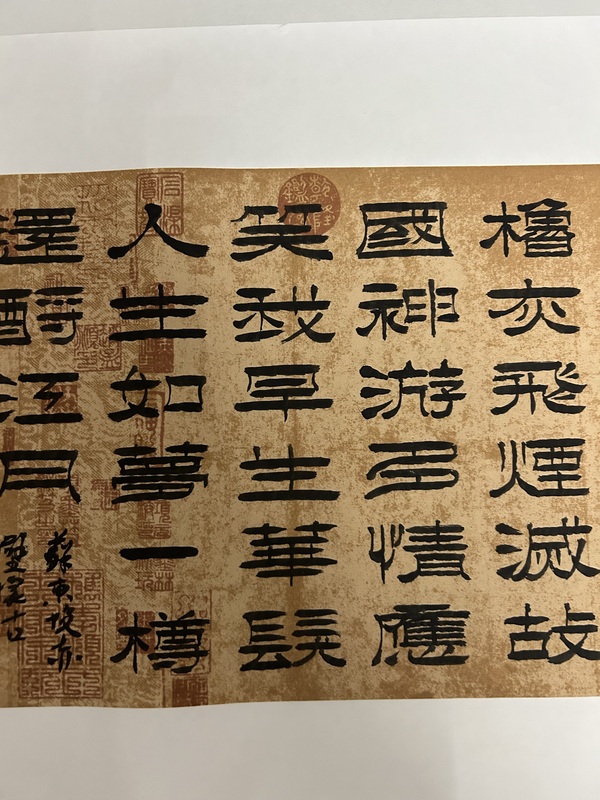 櫓灰飛煙滅故
國神游多情應
笑我早生華髮
人生如夢一樽
還酹江月
蘇東坡赤
壁懷古